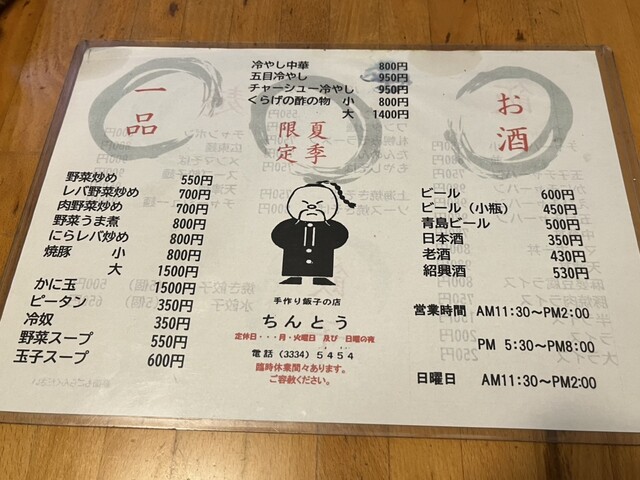 冷やし中華 800円
五目冷やし 950円
チャーシュー冷やし 950円
くらげの酢の物 小 800円
大 1400円
一品
夏季限定
お酒
野菜炒め 550円
レバ野菜炒め 700円
肉野菜炒め 700円
野菜うま煮 800円
にらレバ炒め 800円
焼豚 小 800円
大 1500円
かに玉 1500円
ピータン 350円
冷奴 350円
野菜スープ 550円
玉子スープ 600円
手作り飯子の店
ちんとう
定休日・・・月・火曜日 及び 日曜の夜
電話 (3334) 5454
臨時休業間々あります。
ご容赦ください。
ビール 600円
ビール (小瓶) 450円
青島ビール 500円
日本酒 350円
老酒 430円
紹興酒 530円
営業時間 AM11:30～PM2:00
PM 5:30～PM8:00
日曜日 AM11:30～PM2:00